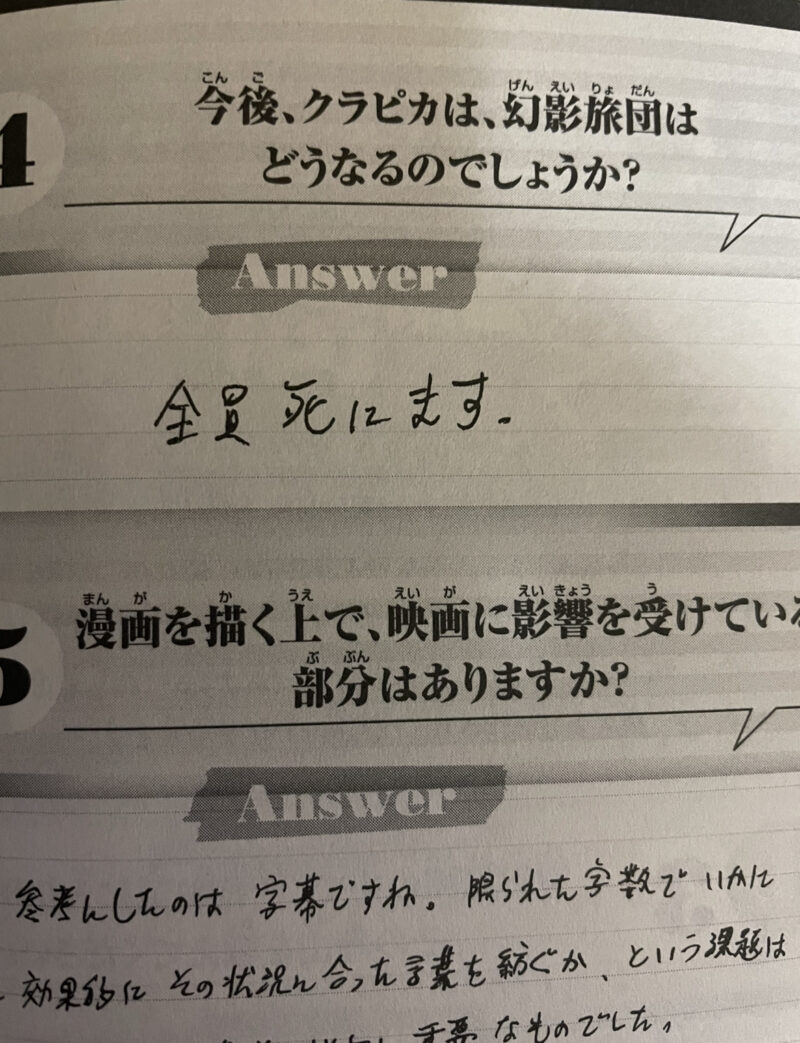 4
今後、クラピカは、幻影旅団は
どうなるのでしょうか?
Answer
全員死にます。
5
漫画を描く上で、映画に影響を受けている
部分はありますか?
Answer
参考にしたのは 字幕ですね。限られた字数で いかに
効果的に その状況に合った言葉を紡ぐか、という課題は
重要なものでした。